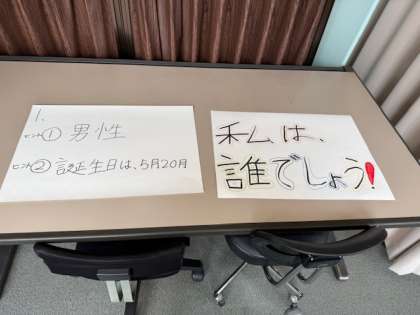 1.
ヒント① 男性
ヒント② 誕生日は、5月20月
私は、
誰でしょう!